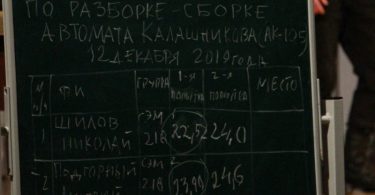 ПО РАЗБОРКЕ-СБОРКЕ
АВТОМАТА КАЛАШНИКОВА (АК-105)
12 ДЕКАБРЯ 2019 ГОДА
№ п/п ФИ ГРУППА 1-я попытка 2-я попытка МЕСТО
1 ШИЛОВ НИКОЛАЙ СЭМ 218 22,52 24,0
2 ПОДГОРНЫЙ СЭМ 218 23,90 24,6